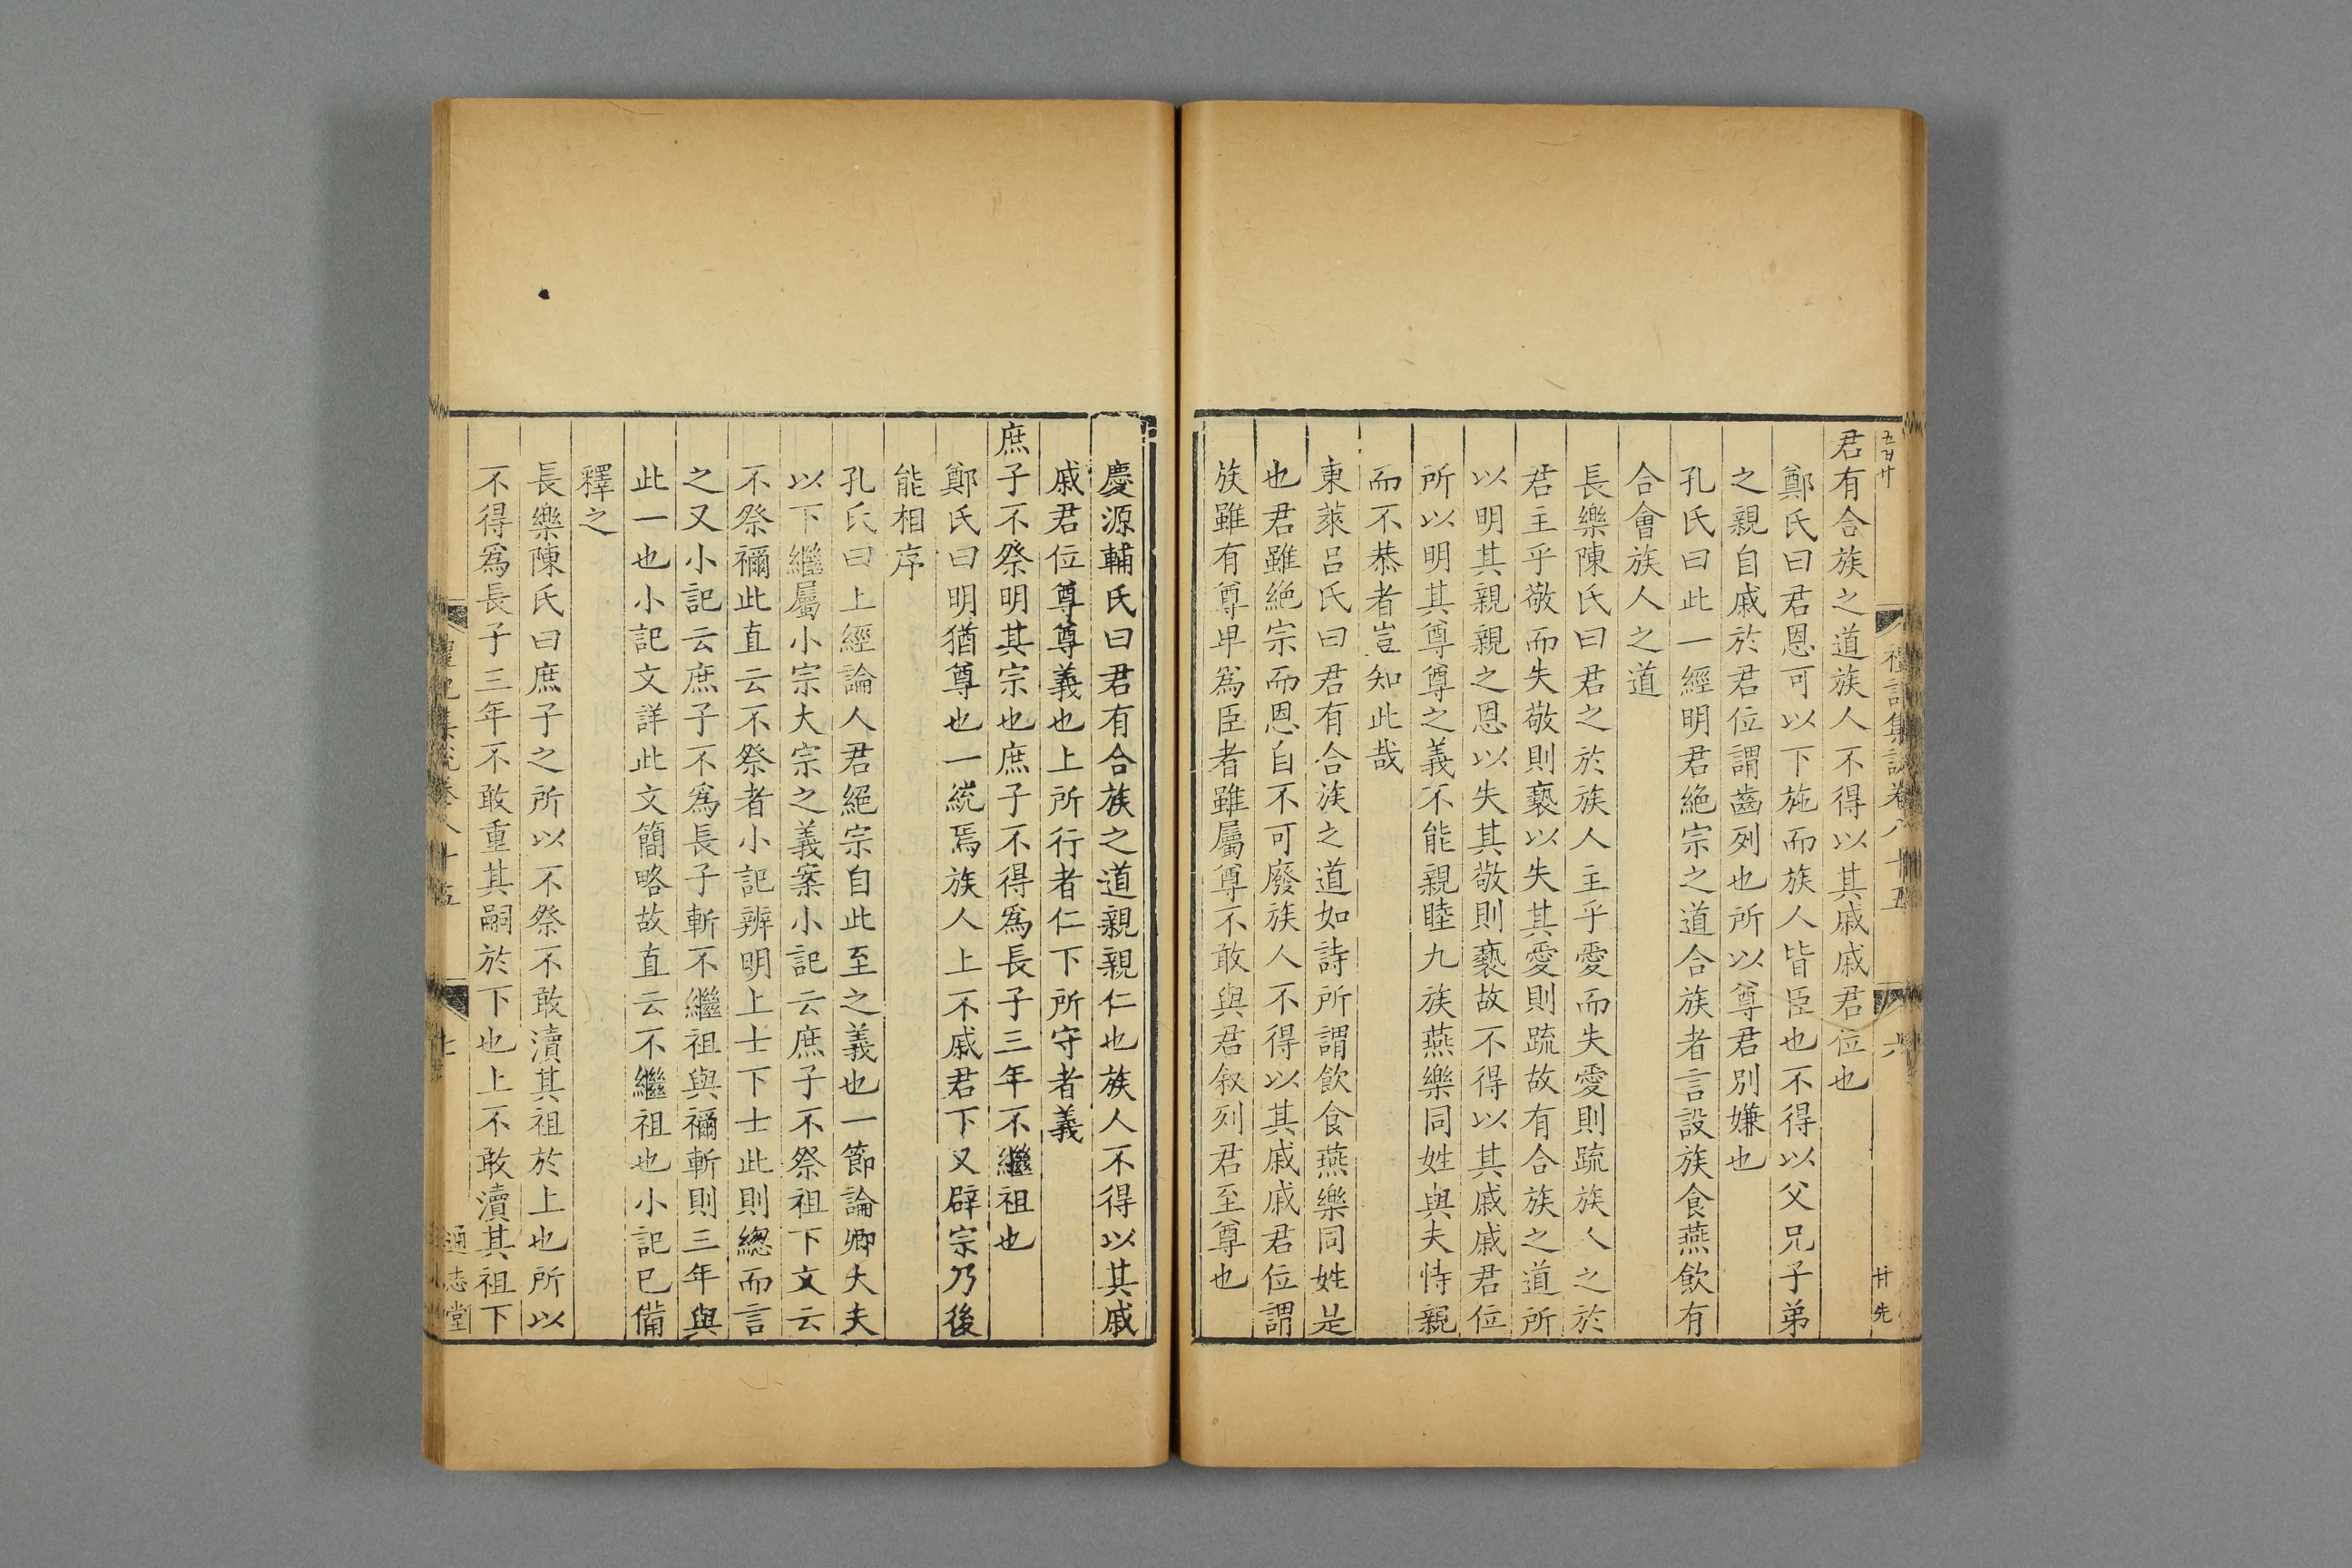 君有合族之道族人不得以其戚戚君位也
鄭氏曰君恩可以下施而族人皆臣也不得以父兄子弟
之親自戚於君位謂齒列也所以尊君別嫌也
孔氏曰此一經明君絶宗之道合族者言設族食燕飲有
合會族人之道
長樂陳氏曰君之於族人主乎愛而失愛則疏族人之於
君主乎敬而失敬則褻以失其愛則疏故有合族之道所
以明其親親之恩以失其敬則褻故不得以其戚戚君位
所以明其尊尊之義不能親睦九族燕樂同姓與夫恃親
而不恭者豈知此哉
東萊呂氏曰君有合族之道如詩所謂飲食燕樂同姓是
也君雖絶宗而恩自不可廢族人不得以其戚戚君位謂
族雖有尊卑為臣者雖屬尊不敢與君叙列君至尊也
禮記集說卷八十五
六
廿先
慶源輔氏曰君有合族之道親親仁也族人不得以其戚
戚君位尊尊義也上所行者仁下所守者義
庶子不祭明其宗也庶子不得為長子三年不繼祖也
鄭氏曰明猶尊也一統焉族人上不戚君下又辟宗乃後
能相序
孔氏曰上經論人君絕宗自此至之義也一節論卿大夫
以下繼屬小宗大宗之義案小記云庶子不祭祖下文云
不祭禰此直云不祭者小記辨明上士下士此則總而言
之又小記云庶子不為長子斬不繼祖與禰斬則三年與
此一也小記文詳此文簡略故直云不繼祖也小記已備
釋之
長樂陳氏曰庶子之所以不祭不敢瀆其祖於上也所以
不得爲長子三年不敢重其嗣於下也上不敢瀆其祖下
禮記集說卷八十五
七
通志堂